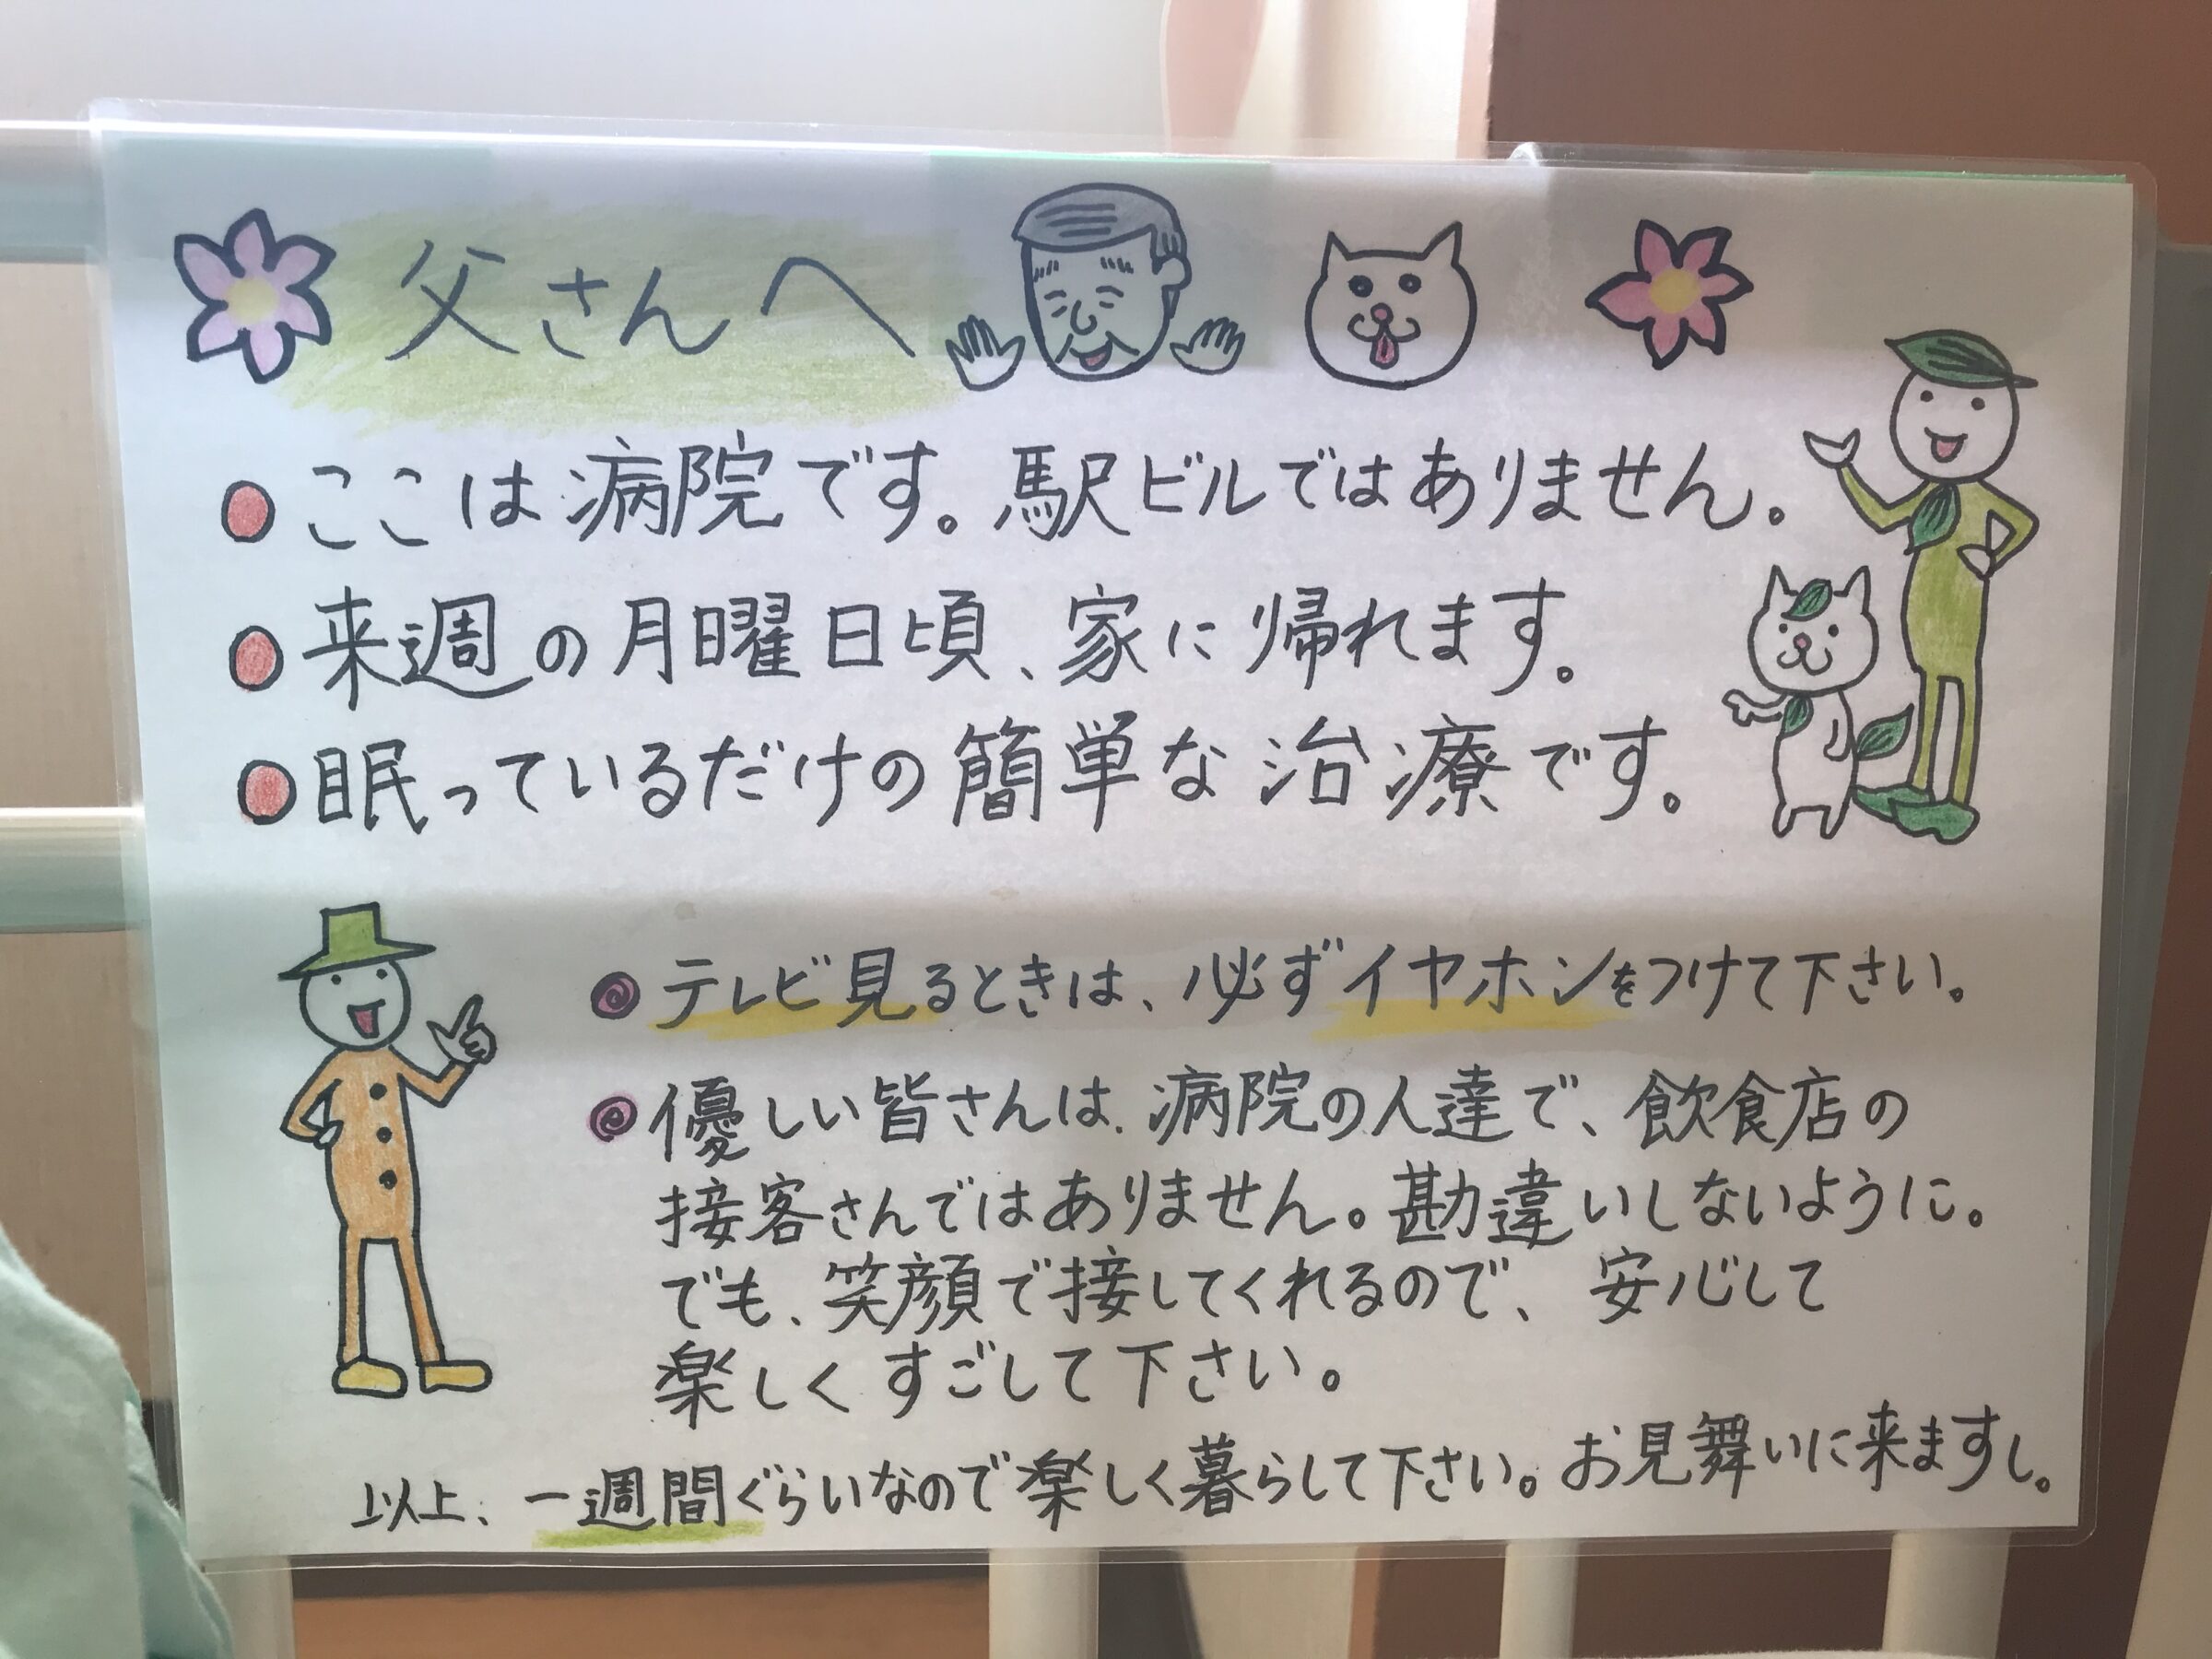 父さんへ
ここは病院です。駅ビルではありません。
来週の月曜日頃、家に帰れます。
眠っているだけの簡単な治療です。
テレビ見るときは、必ずイヤホンをつけて下さい。
優しい皆さんは、病院の人達で、飲食店の
接客さんではありません。勘違いしないように。
でも、笑顔で接してくれるので、安心して
楽しくすごして下さい。
以上、一週間ぐらいなので楽しく暮らして下さい。お見舞いに来ますし。